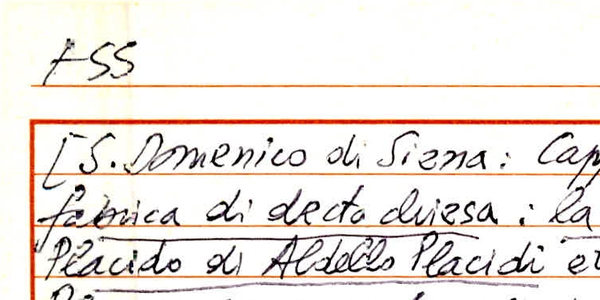 ASS
[S. Domenico di Siena: Cap
fabrica di decta chiesa: la
Placido di Aldello Placidi et